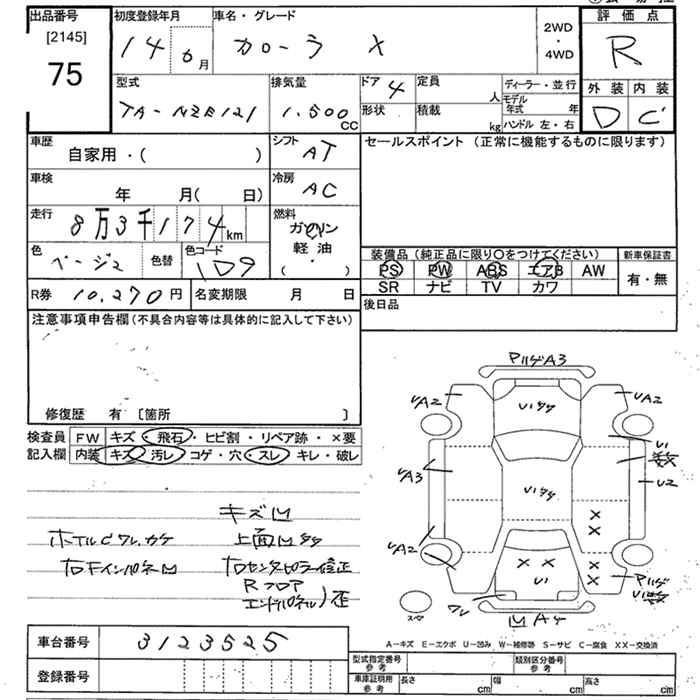 出品番号 初度登録年月 車名・グレード 2WD・4WD 評価点
[2145]
75 14 6月 カローラ X R
型式 排気量 ドア 4 定員 人 ディーラー・並行 外装 内装
TA-NZE121 1.500 CC 形状 積載 kg モデル年式 年 ハンドル 左・右 D C
車歴 自家用・( ) シフト AT セールスポイント (正常に機能するものに限ります)
車検 年 月( 日) 冷房 AC
走行 8万3千174km 燃料 ガソリン
軽油
( ・ )
色 ベージュ 色替 色コード 1D9 装備品 (純正品に限り○をつけてください) 新車保証書
PS PW ABS エアB AW 有・無
SR ナビ TV カワ
R券 10,270円 名変期限 月 日 後日品
注意事項申告欄 (不具合内容等は具体的に記入して下さい)
修復歴 有 [箇所 ]
検査員 FW キズ・飛石・ヒビ割・リペア跡・×要
記入欄 内装 キズ 汚レ・コゲ・穴・スレ・キレ・破レ
キズ凹
ホイルCワレ.カケ 上面凹多々
右Fインパネ凹 右センターピラー修正
Rフロア
エンドパネル)歪
PハゲA3
UA2 Uい多々 UA2
Uい
数
UA3 Uい多々 U2
× ×
UA2 × × Uい × × Pハゲ
Uい数
ワレ
スペヤ 凹A4
A-キズ E-エクボ U-凹み W-補修跡 S-サビ C-腐食 XX-交換済
車台番号 3123525
登録番号
型式指定番号 参考 類別区分番号 参考
車庫証明用 参考 長さ cm 幅 cm 高さ cm